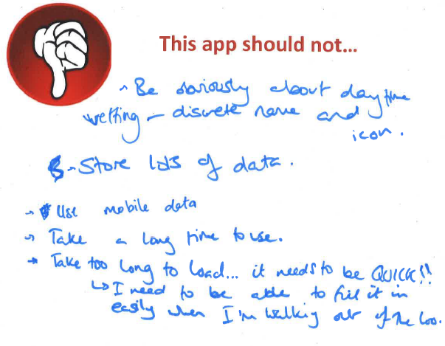 This app should not...
- Be obviously about daytime
wetting - discrete name and
icon.
- Store lots of data.
→ Use mobile data
→ Take a long time to use.
→ Take too long to load... it needs to be QUICK!!
↳ I need to be able to fill it in
easily when I'm walking out of the loo.